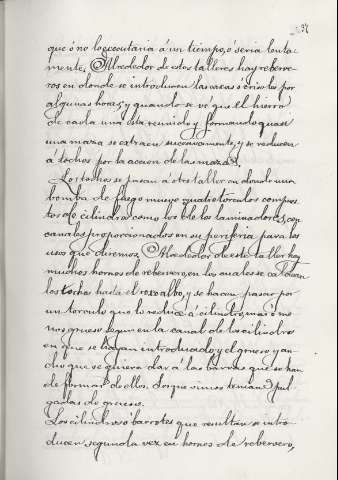 que ó no lo executaria á un tiempo, ó seria lenta
mente. Alrededor de estos talleres hay reberve
ros en donde se introducen las caxas ó crisoles por
algunas horas, y quando se vé que el hierro
de cada una esta reunido y formando quasi
una maza, se extraen sucesivamente, y se reducen
á tochos por la accion de las mazas.
Los tochos se pasan á otro taller en donde una
bomba de fuego mueve quatro torculos compues
tos de cilindros como los de los laminadores, con
canales proporcionados en su periferia para los
usos que diremos. Alrededor de este taller hay
muchos hornos de rebervero, en los cuales se caldean
los tochos hasta el roxo albo, y se hacen pasar por
un torculo que lo reduce á cilindro, mas ó me
nos grueso segun la canal de los cilindros
en que se hayan introducido, y el grueso y an
cho que se quiera dar á las barras que se han
de formar de ellos. Los que vimos tenian pul
gadas de grueso.
Los cilindros ó barrotes que resultan se intro
ducen segunda vez en hornos de reberveros,